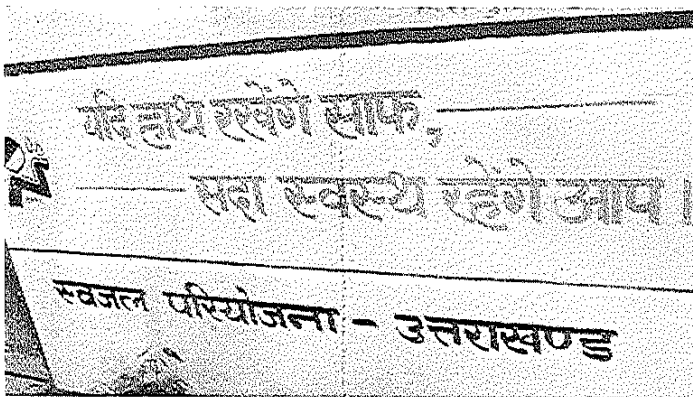 यदि हाथ रखेंगे साफ,
सदा स्वस्थ रहेंगे आप।
स्वजल परियोजना - उत्तराखण्ड